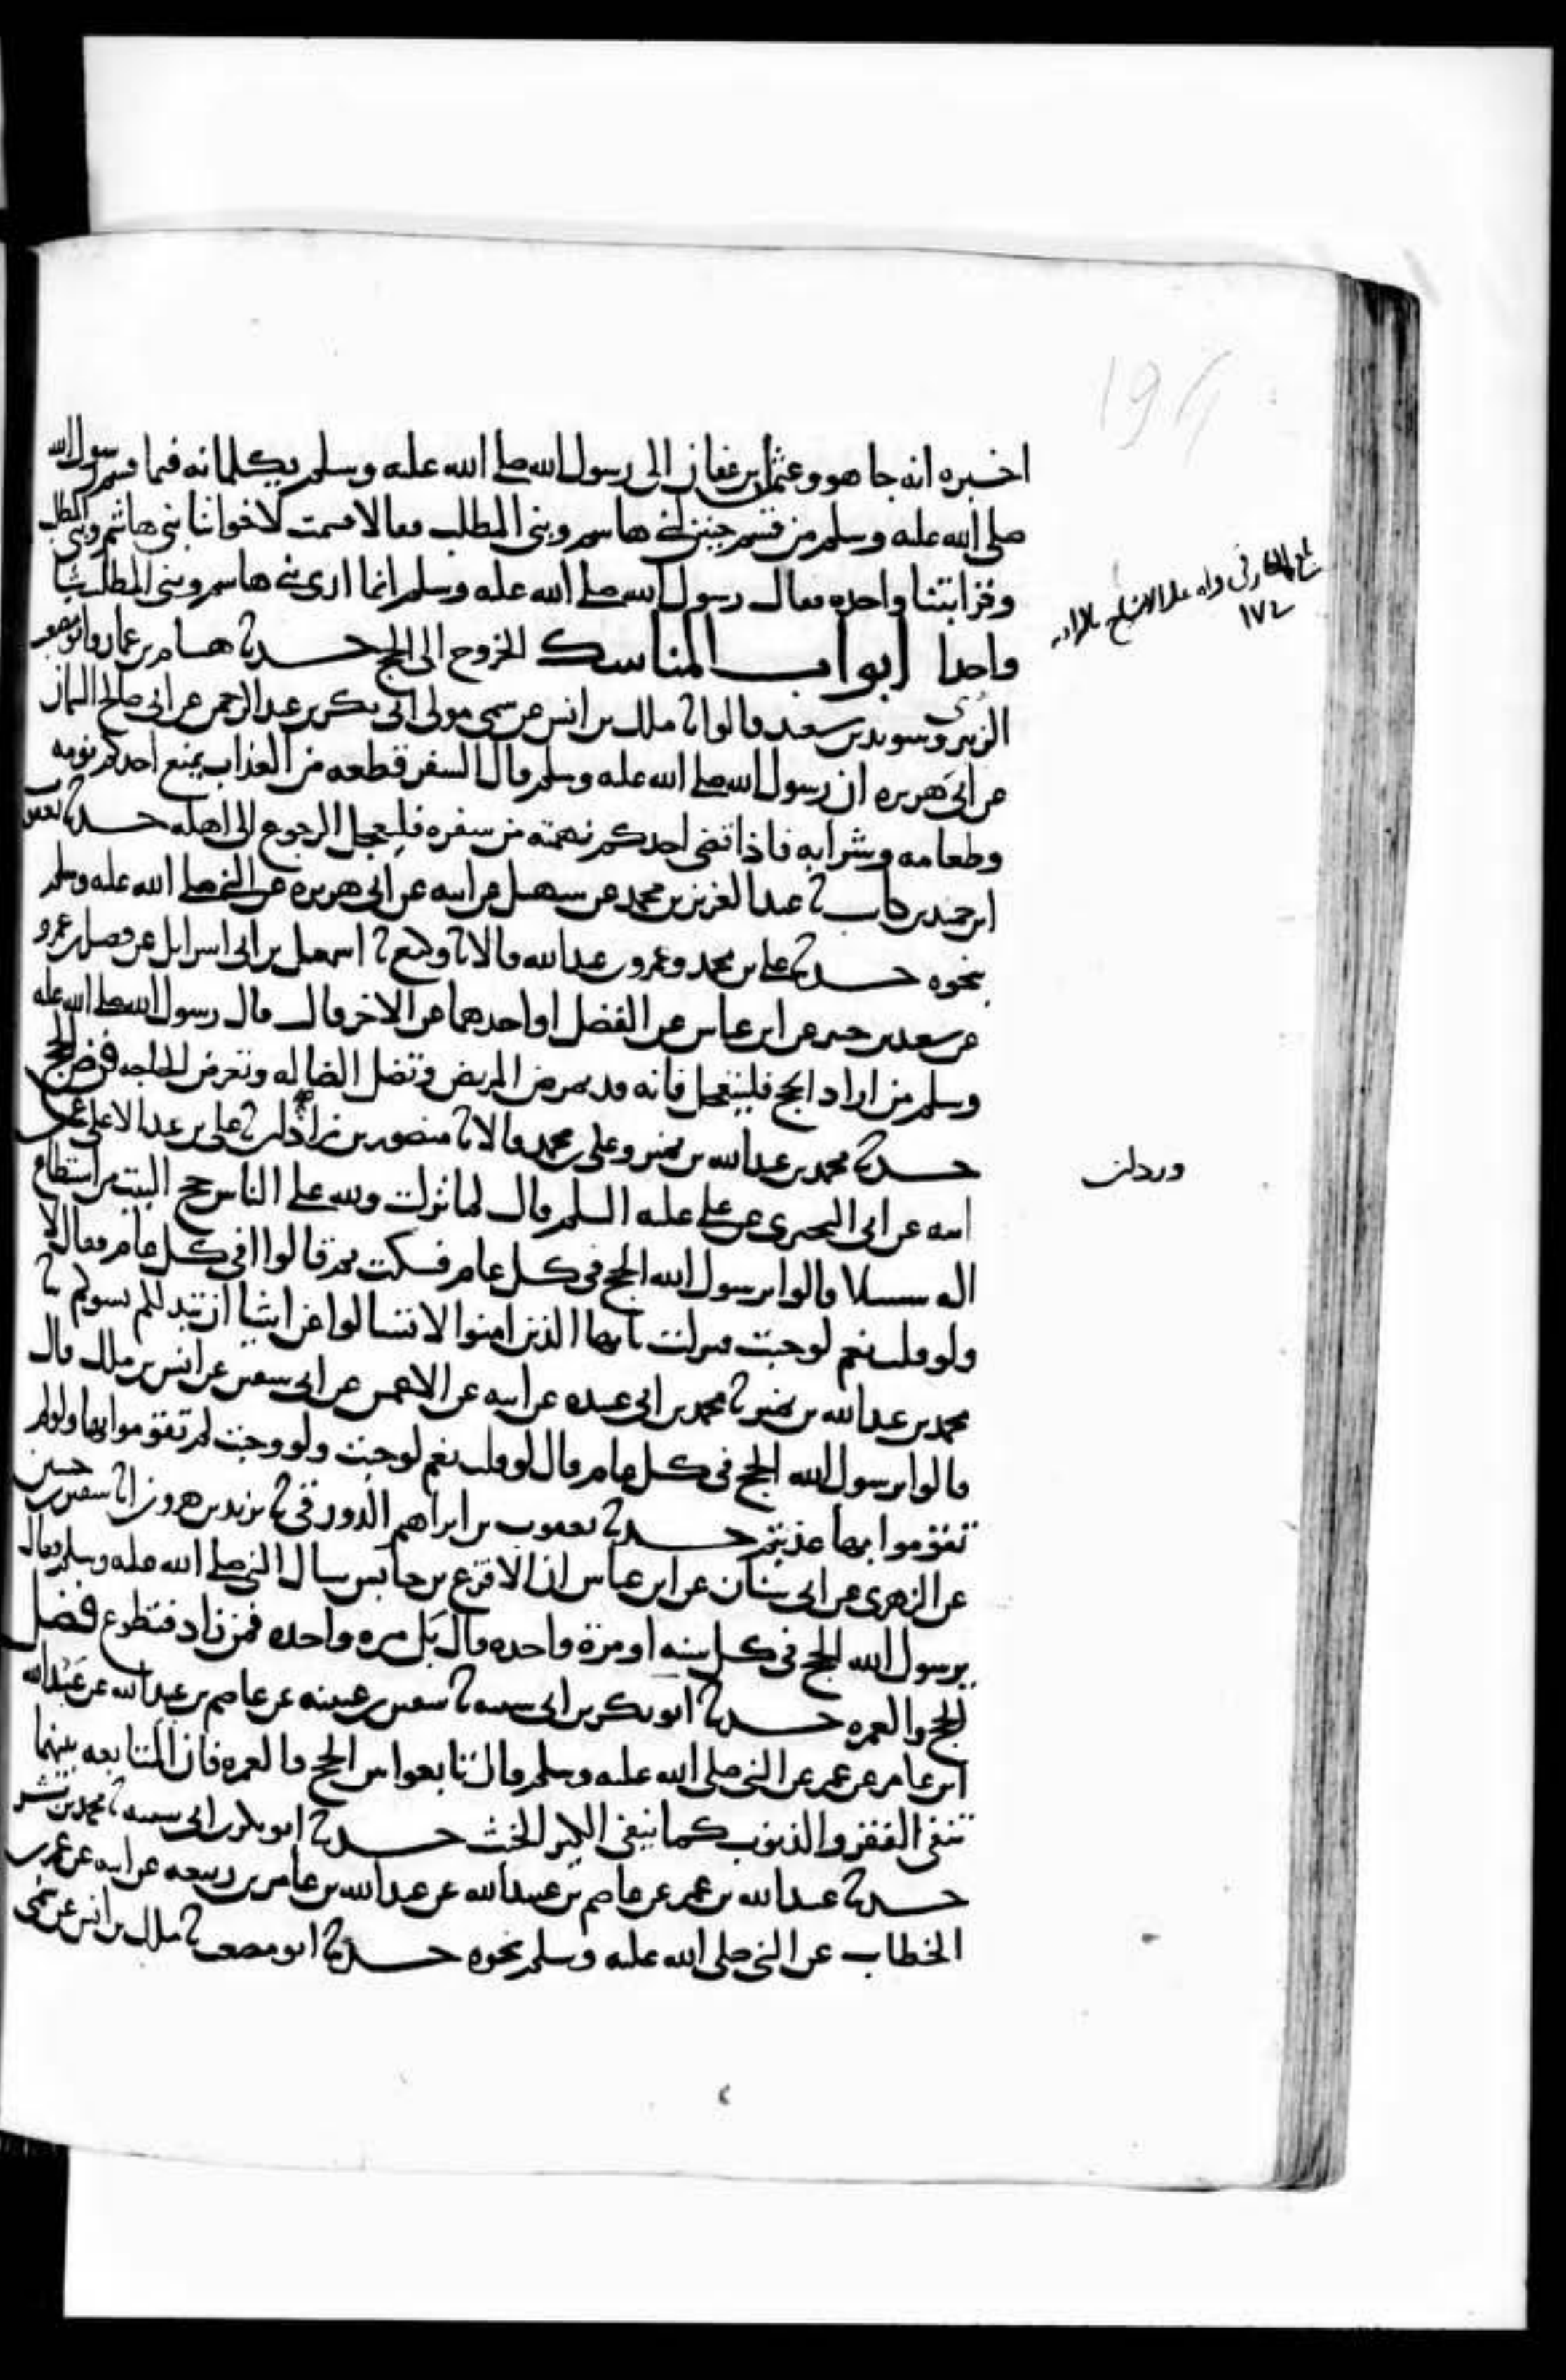 اخبره انه جا هو وعثمن بن عفان الى رسول الله صلى الله عليه وسلم يكلمانه فيما قسم رسول الله
صلى الله عليه وسلم من قسم حنين لبني هاشم وبني المطلب فقالا قسمت لاخواننا بني هاشم وبني المطلب
وقرابتنا واحده فقال رسول الله صلى الله عليه وسلم انما ارى بني هاشم وبني المطلب شيا
واحدا ابواب المناسك الخروج الى الحج حدثنا هشام بن عمار وابو مصعب
الزهري وسويد بن سعيد قالوا ثنا ملك بن انس عن سمي مولى ابي بكر بن عبد الرحمن عن ابي صالح السمان
عن ابي هريره ان رسول الله صلى الله عليه وسلم قال السفر قطعه من العذاب يمنع احدكم نومه
وطعامه وشرابه فاذا قضى احدكم نهمته من سفره فليعجل الرجوع الى اهله حدثنا يعقوب
ابن حميد بن كاسب ثنا عبد العزيز بن محمد عن سهيل عن ابيه عن ابي هريره عن النبي صلى الله عليه وسلم
بنحوه حدثنا علي بن محمد وعمرو بن عبد الله قالا ثنا وكيع ثنا اسمعيل ابو اسرائيل عن فضيل بن عمرو
عن سعيد بن جبير عن ابن عباس عن الفضل او احدهما عن الاخر قال قال رسول الله صلى الله عليه
وسلم من اراد الحج فليتعجل فانه قد يمرض المريض وتضل الضاله وتعرض الحاجه فرض الحج
حدثنا محمد بن عبد الله بن نمير وعلي بن محمد قالا ثنا منصور بن زاذان ثنا علي بن عبد الاعلى عن
ابيه عن ابي البختري عن علي عليه السلم قال لما نزلت ولله على الناس حج البيت من استطاع
اليه سبيلا قالوا يرسول الله الحج في كل عام فسكت ثم قالوا افي كل عام فقال لا
ولو قلت نعم لوجبت فنزلت يايها الذين امنوا لا تسالوا عن اشيا ان تبد لكم تسوكم ثنا
محمد بن عبد الله بن نمير ثنا محمد بن ابي عبيده عن ابيه عن الاعمش عن ابي سفين عن انس بن ملك قال
قالوا يرسول الله الحج في كل عام قال لو قلت نعم لوجبت ولو وجبت لم تقوموا بها ولو لم
تقوموا بها عذبتم حدثنا يعقوب بن ابراهيم الدورقي ثنا يزيد بن هرون انا سفين بن حسين
عن الزهري عن ابي سنان عن ابن عباس ان الاقرع بن حابس سال النبي صلى الله عليه وسلم فقال
يرسول الله الحج في كل سنه او مرة واحده قال بل مره واحده فمن زاد فتطوع فضل
الحج والعمره حدثنا ابو بكر بن ابي شيبه ثنا سفين بن عيينه عن عاصم بن عبيد الله عن عبد الله
ابن عامر عن عمر عن النبي صلى الله عليه وسلم قال تابعوا بين الحج والعمره فان المتابعه بينهما
تنفي الفقر والذنوب كما ينفي الكير الخبث حدثنا ابو بكر بن ابي شيبه ثنا محمد بن بشر
حدثنا عبيد الله بن عمر عن عاصم بن عبيد الله عن عبد الله بن عامر بن ربيعه عن ابيه عن عمر بن
الخطاب عن النبي صلى الله عليه وسلم نحوه حدثنا ابو مصعب ثنا ملك بن انس عن سمي
وردان
١٧٤